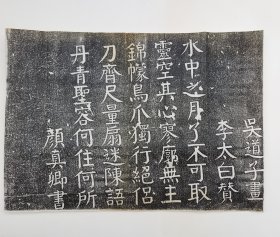 吳道子畫
李太白贊
水中之月了不可取
虛空其心寥廓無主
錦幪鳥爪獨行絕侶
刀齊尺量扇迷陳語
丹青聖容何住何所
顏真卿書